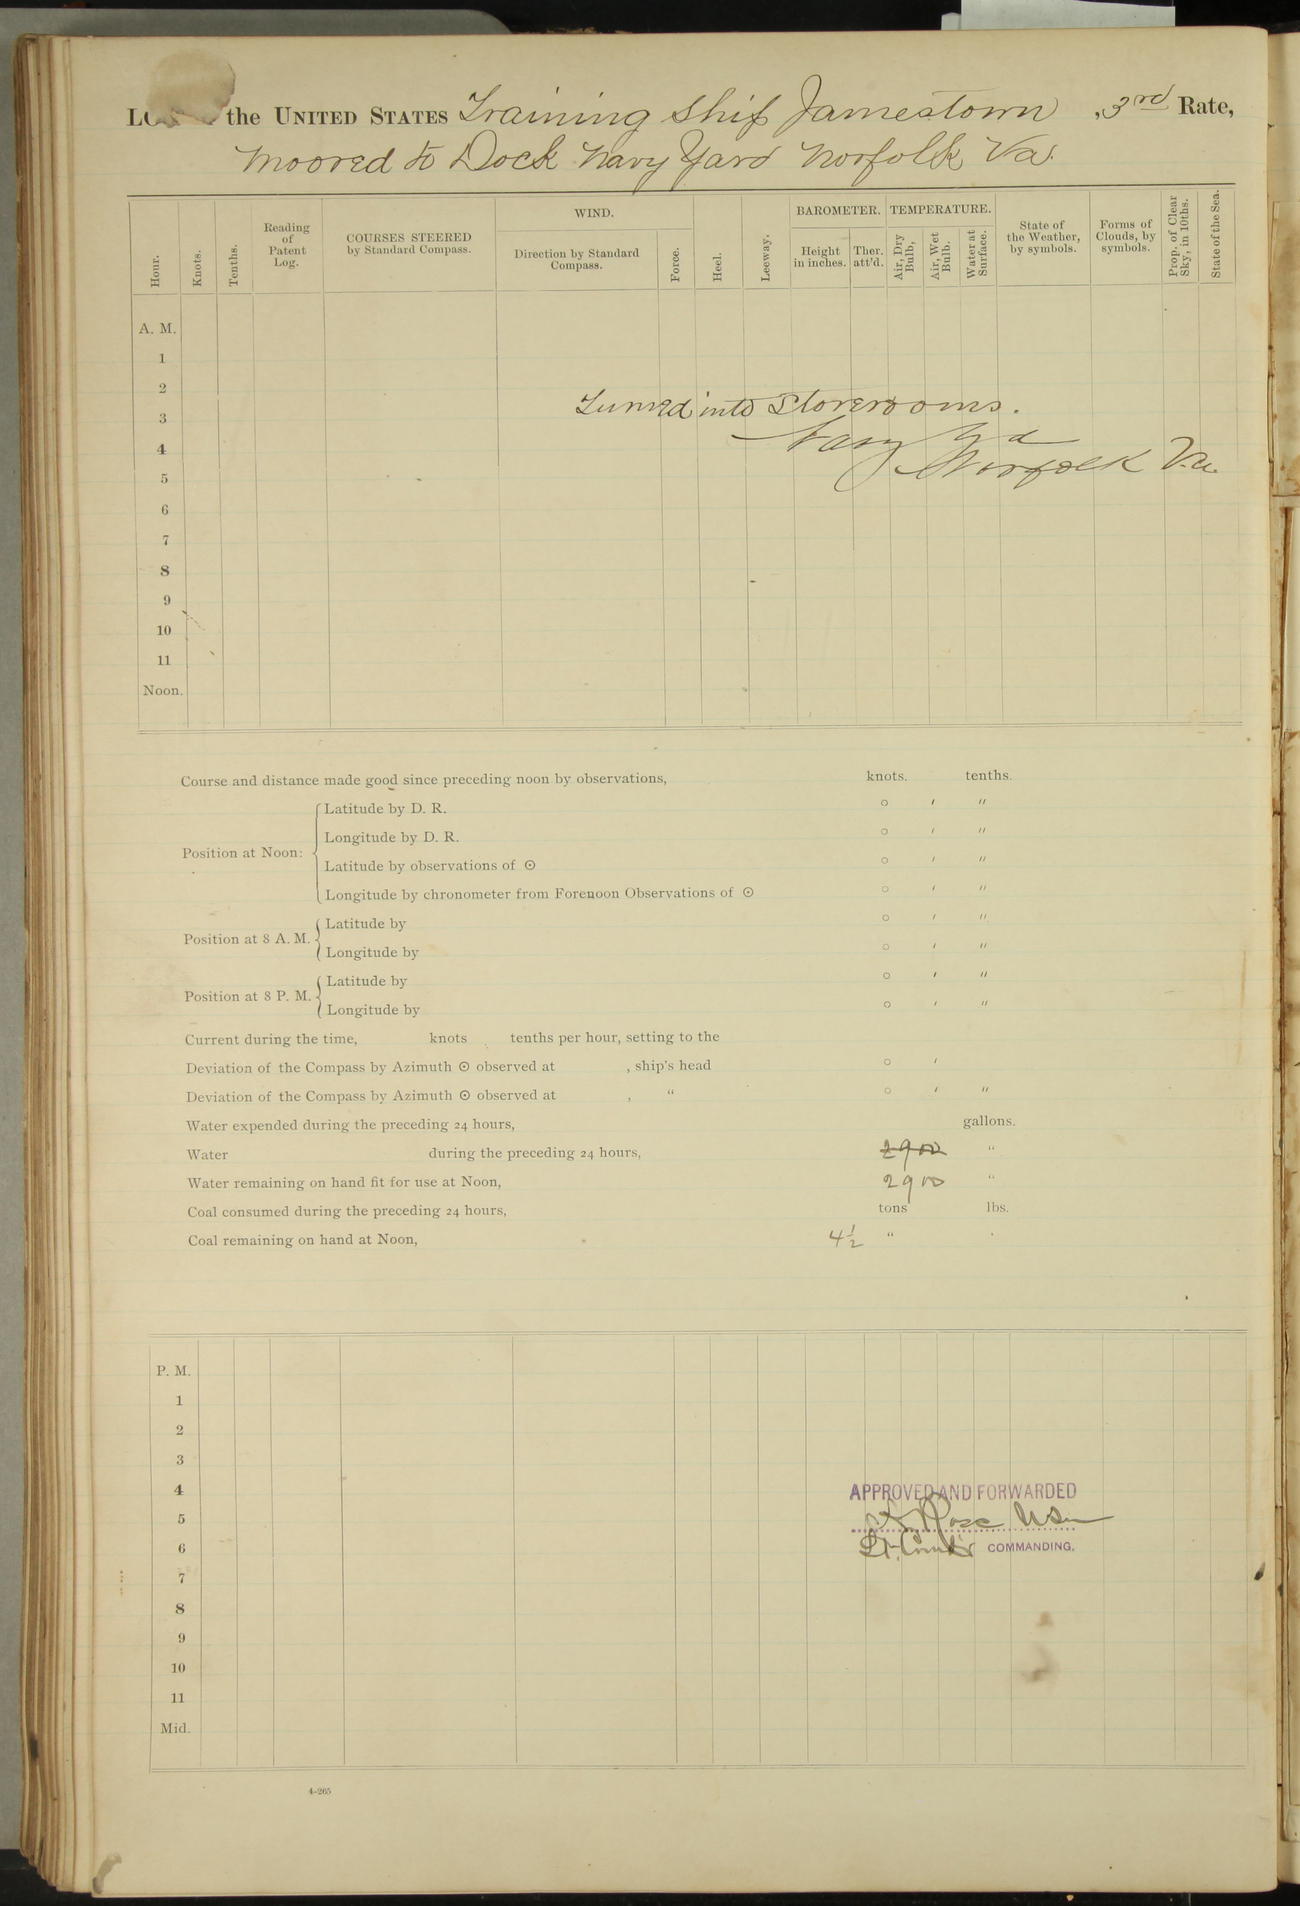 the UNITED STATES Training Ship Jamestown, 3rd Rate,
Moored to Dock Navy Yard Norfolk Va.
Hour.
Knots.
Tenths.
Reading of Patent Log.
COURSES STEERED by Standard Compass.
WIND.
Direction by Standard Compass.
Force.
Heel.
Leeway.
BAROMETER.
Height in inches.
Ther. att'd.
TEMPERATURE.
Air, Dry Bulb,
Air, Wet Bulb.
Water at Surface.
State of the Weather, by symbols.
Forms of Clouds, by symbols.
Prop. of Clear Sky, in 10ths.
State of the Sea.
A. M.
1
2
Turned into Storerooms.
3
Navy Yd
4
Norfolk Va.
5
6
7
8
9
10
11
Noon.
Course and distance made good since preceding noon by observations, knots. tenths.
Position at Noon:
Latitude by D. R. ° ′ ″
Longitude by D. R. ° ′ ″
Latitude by observations of ☉ ° ′ ″
Longitude by chronometer from Forenoon Observations of ☉ ° ′ ″
Position at 8 A. M.
Latitude by ° ′ ″
Longitude by ° ′ ″
Position at 8 P. M.
Latitude by ° ′ ″
Longitude by ° ′ ″
Current during the time, knots tenths per hour, setting to the
Deviation of the Compass by Azimuth ☉ observed at , ship's head ° ′
Deviation of the Compass by Azimuth ☉ observed at , “ ° ′ ″
Water expended during the preceding 24 hours, gallons.
Water during the preceding 24 hours, 2900 “
Water remaining on hand fit for use at Noon, 2900 “
Coal consumed during the preceding 24 hours, tons lbs.
Coal remaining on hand at Noon, 4½ “
P. M.
1
2
3
4
APPROVED AND FORWARDED
5
6
Lt. Comd'r COMMANDING.
7
8
9
10
11
Mid.
4-265